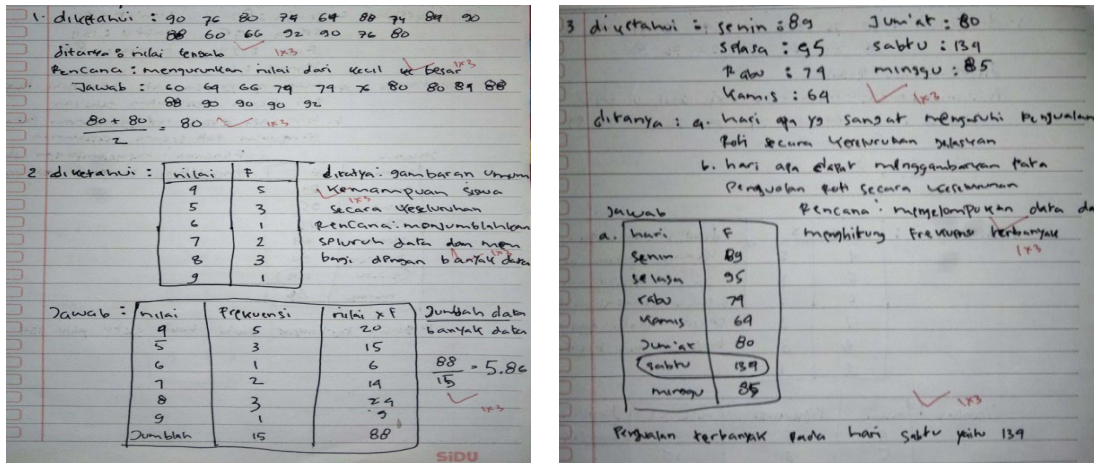 1. diketahui : 90 76 80 74 64 88 74 84 90
88 60 66 92 90 76 80
ditanya : nilai tengah
1x3
Rencana : mengurutkan nilai dari kecil ke besar
1x3
Jawab : 60 64 66 74 74 76 80 80 84 88
88 90 90 90 92
80 + 80
2
= 80
1x3
2 diketahui :
nilai F
4 5
5 3
6 1
7 2
8 3
9 1
ditanya : gambaran umum
kemampuan siswa
1x3
secara keseluruhan
Rencana : menjumblahkan
seluruh data dan mem
bagi dengan banyak data
1x3
Jawab :
nilai Frekuensi nilai x F
4 5 20
5 3 15
6 1 6
7 2 14
8 3 24
9 1 9
Jumblah 15 88
Jumblah data
banyak data
88
15
= 5.86
1x3
SiDU
3 diketahui : senin : 89 Jum'at : 80
selasa : 95 sabtu : 134
Rabu : 74 minggu : 85
Kamis : 64
1x3
ditanya : a. hari apa yg sangat Penjualan
Roti secara keseluruhan Jelaskan
b. hari apa dapat menggambarkan rata
Penjualan Roti secara keseluruhan
Jawab
Rencana : mengelompokan data da
menghitung Frekuensi terbanyak
1x3
a.
hari F
senin 89
selasa 95
rabu 74
kamis 64
Jum'at 80
sabtu 134
minggu 85
1x3
Penjualan terbanyak pada hari sabtu yaitu 134